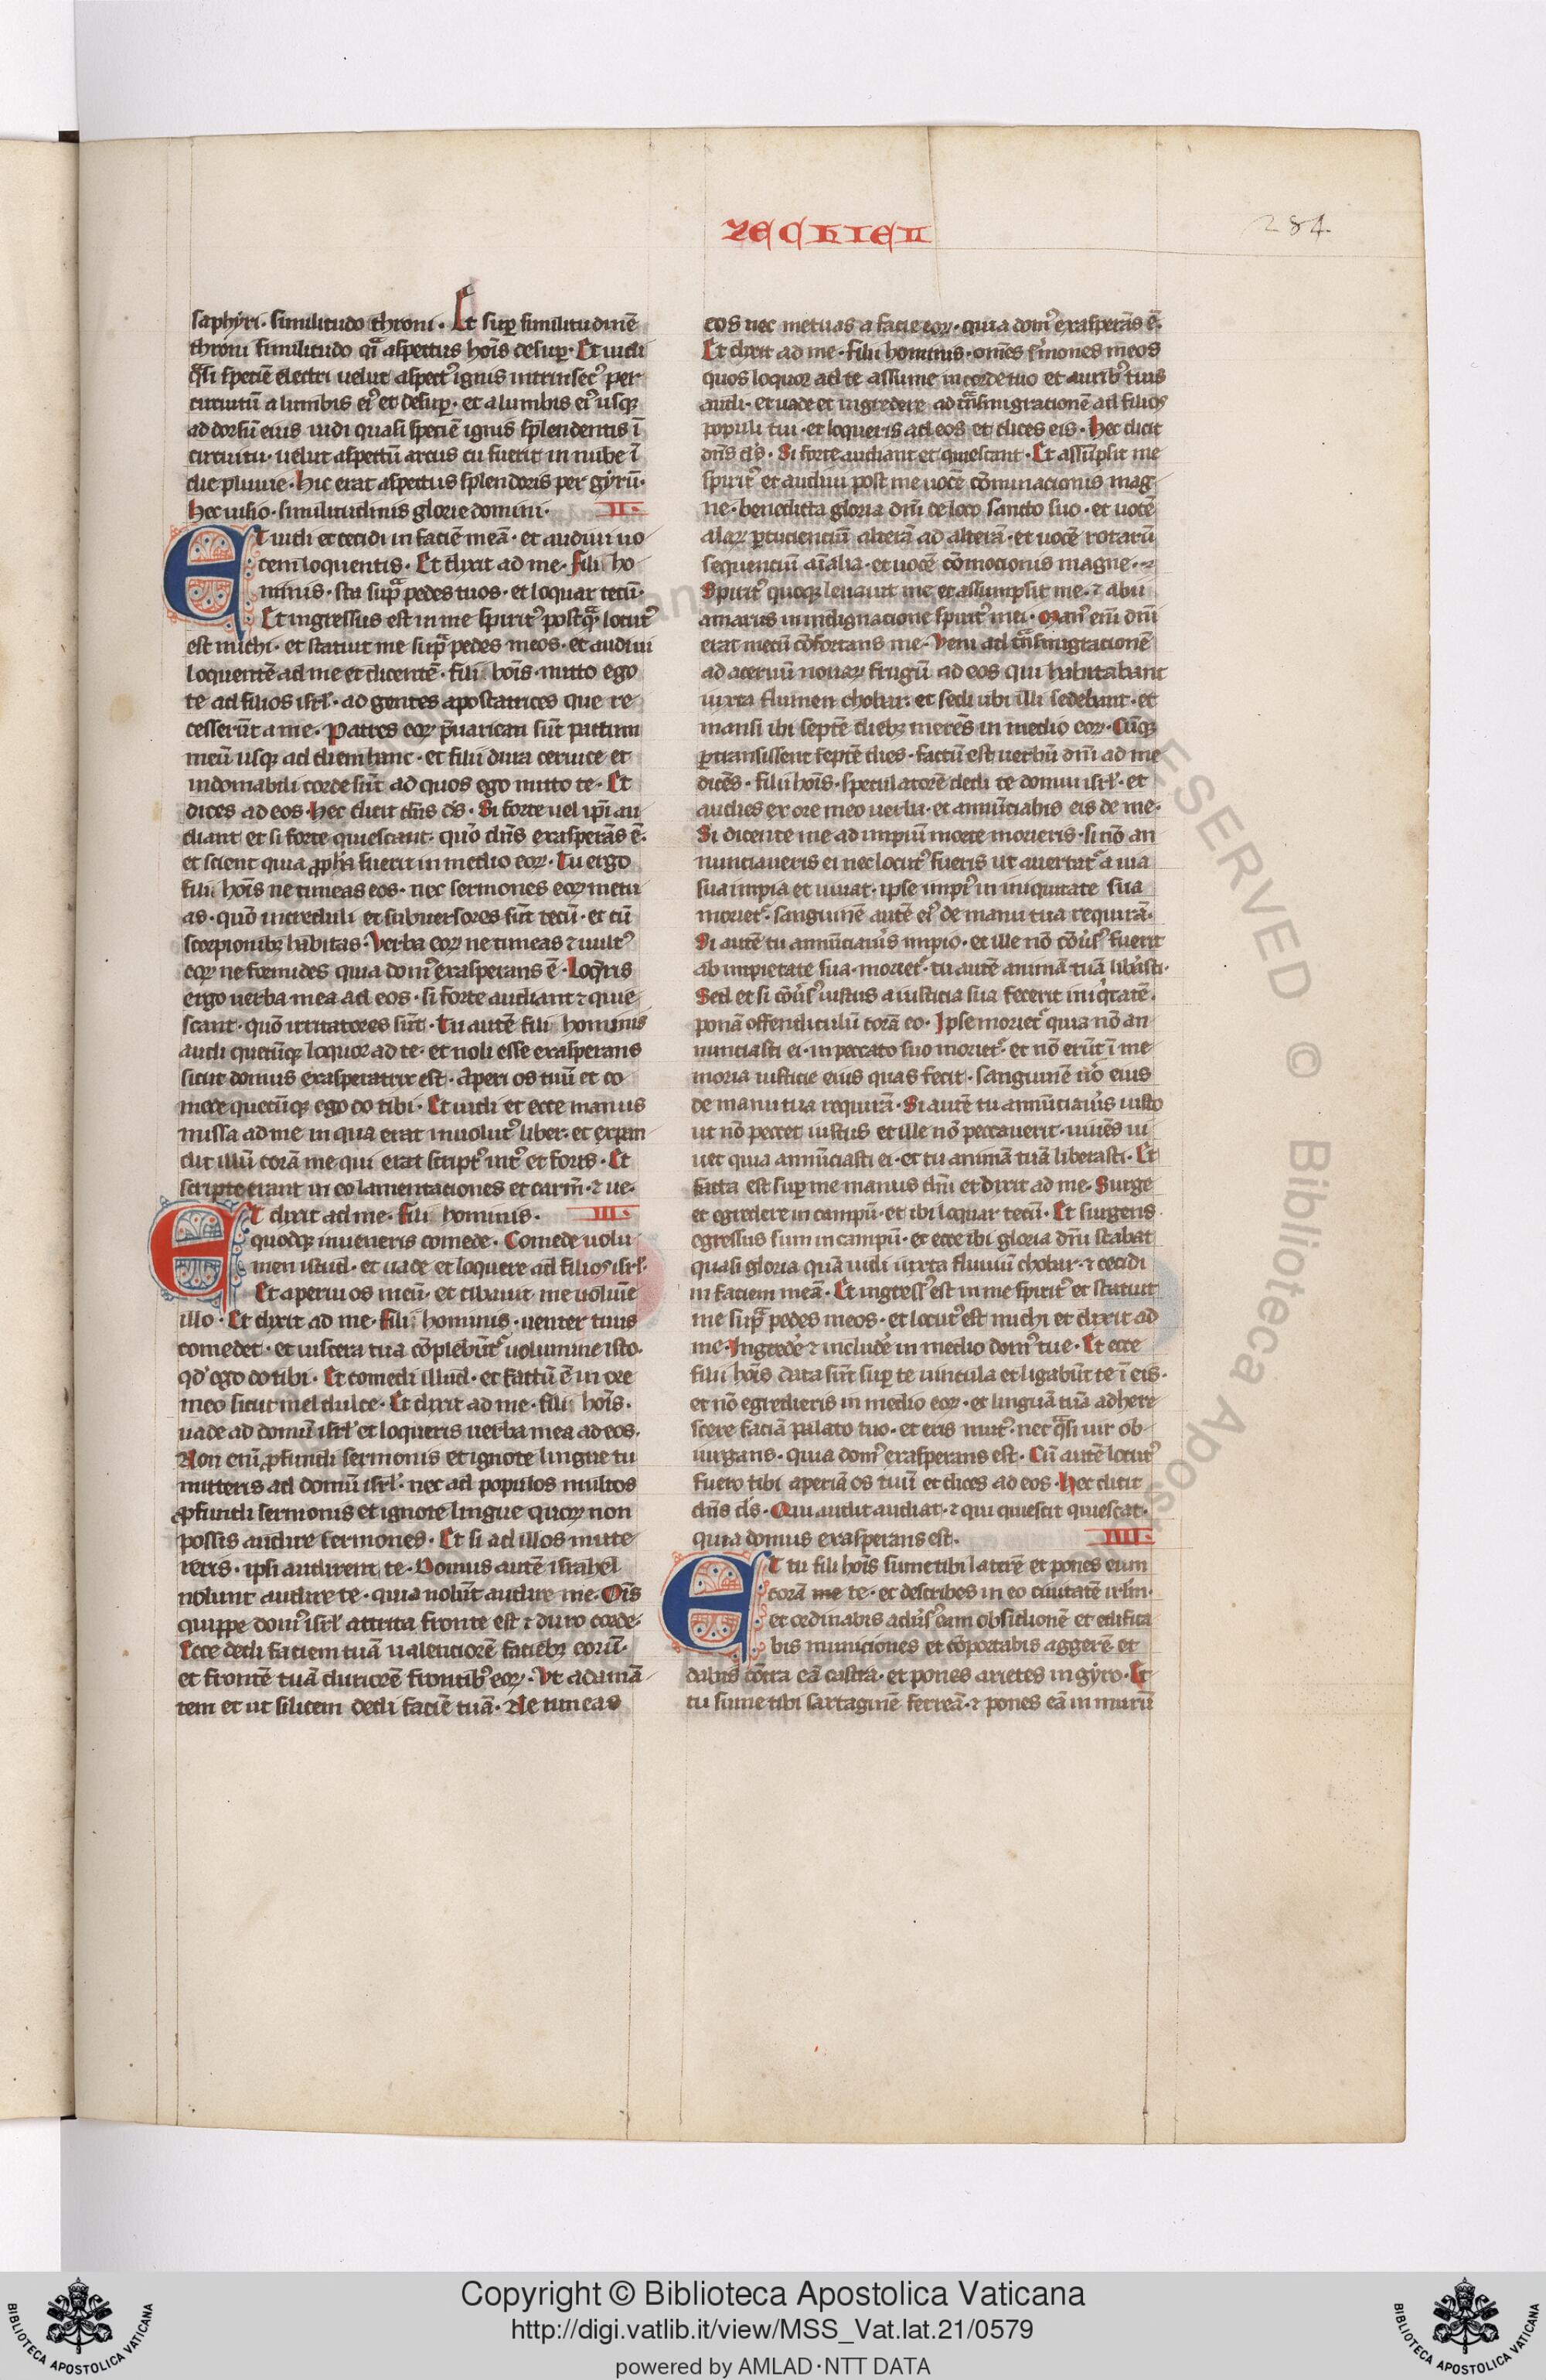 ZECHIEL
284.
saphyri· similitudo throni· Et suꝑ similitudinē
throni similitudo qͣi aspectus hoīs desuꝑ· Et uidi
qͣsi speciē electri uelut aspectꝰ ignis intrinsecꝰ per
circuitū a lumbis eiꝰ et desuꝑ· et a lumbis eiꝰ usqꝫ
ad dorsū eius uidi quasi speciē ignis splendentis ī
circuitu· uelut aspectū arcus cū fuerit in nube ī
die pluuie· Hic erat aspectus splendoris per gyrū·
hec uisio· similitudinis glorie domini· II·
Et uidi et cecidi in faciē meā· et audiui uo
cem loquentis· Et dixit ad me· Fili ho
minis· sta supͣ pedes tuos· et loquar tecū·
Et ingressus est in me spiritꝰ postqͣꝫ locutꝰ
est michi· et statuit me supͣ pedes meos· et audiui
loquentē ad me et dicentē· fili hoīs· mitto ego
te ad filios isrl̄· ad gentes apostatrices que re
cesserūt a me· Patres eoꝝ p̄uaricati sūt pactum
meū usqꝫ ad diem hanc· et filii dura ceruice et
indomabili corde sūt ad quos ego mitto te· Et
dices ad eos· Hec dicit dn̄s ds̄· Si forte uel ip̄i au
diant et si forte quiescant· quō dn̄s exasperās ē·
et scient quia ꝓph̄a fuerit in medio eoꝝ· Tu ergo
fili hoīs ne timeas eos· nec sermones eoꝝ metu
as· quō increduli et subuersores sūt tecū· et cū
scorpionibꝫ habitas· Verba eoꝝ ne timeas ⁊ uultꝰ
eoꝝ ne formides quia domꝰ exasperans ē· Loq̄ris
ergo uerba mea ad eos· si forte audiant ⁊ quie
scant· quō irritatores sūt· Tu autē fili hominis
audi quecūqꝫ loquor ad te· et noli esse exasperans
sicut domus exasperatrix est· Aperi os tuū et co
mede quecūqꝫ ego do tibi· Et uidi et ecce manus
missa ad me in qua erat inuolutꝰ liber· et expan
dit illū corā me qui erat scriptꝰ intꝰ et foris· Et
scripte erant in eo lamentaciones et carm̄· ⁊ ue·
Et dixit ad me· fili hominis· III·
quodqꝫ inueneris comede· Comede uolu
men istud· et uade et loquere ad filios isrl̄·
Et aperui os meū· et cibauit me uolumē
illo· Et dixit ad me· fili hominis· uenter tuus
comedet· et uiscera tua cōplebūtᷣ uolumine isto·
qd̓ ego do tibi· Et comedi illud· et factū ē in ore
meo sicut mel dulce· Et dixit ad me· fili hoīs·
uade ad domū isrl̄ et loqueris uerba mea ad eos·
Non enī ꝓfundi sermonis et ignote lingue tu
mitteris ad domū isrl̄· nec ad populos multos
ꝓfundi sermonis et ignote lingue quoꝝ non
possis audire sermones· Et si ad illos mitte
reris· ipsi audirent te· Domus autē israhel
nolunt audire te· quia nolūt audire me· Oīs
quippe domꝰ isrl̄ attrita fronte est ⁊ duro corde·
Ecce dedi faciem tuā ualenciorē faciebꝫ eorū·
et frontē tuā duriorē frontibꝰ eoꝝ· Vt adamā
tem et ut silicem dedi faciē tuā· Ne timeas
eos nec metuas a facie eoꝝ· quia domꝰ exasperās ē·
Et dixit ad me· fili hominis· omēs s̓mones meos
quos loquor ad te assume in corde tuo et auribꝰ tuis
audi· et uade et ingredere ad tͣnsmigrationē ad filios
populi tui· et loqueris ad eos et dices eis· Hec dicit
dn̄s ds̄· Si forte audiant et quiescant· Et assūpsit me
spiritꝰ et audiui post me uocē cōminacionis mag
ne· benedicta gloria dn̄i de loco sancto suo· et uocē
alaꝝ ꝑcuciencium alterā ad alterā· et uocē rotarū
sequenciū aīalia· et uocē cōmocionis magne·
Spiritꝰ quoqꝫ leuauit me et assumpsit me· ⁊ abii
amarus in indignacione spiritꝰ mei· Manꝰ enī dn̄i
erat mecū cōfortans me· Veni ad tͣnsmigracionē
ad aceruū nouaꝝ frugū ad eos qui habitabant
iuxta flumen chobar· et sedi ubi illi sedebant· et
mansi ibi septē diebꝫ merēs in medio eoꝝ· Cūqꝫ
ꝑtransissent septē dies· factū est uerbū dn̄i ad me
dicēs· fili hoīs· speculatorē dedi te domui isrl̄· et
audies ex ore meo uerba· et annūciabis eis de me·
Si dicente me ad impiū morte morieris· si nō an
nunciaueris ei nec locutꝰ fueris ut auertatᷣ a uia
sua impia et uiuat· ipse impiꝰ in iniquitate sua
morietᷣ· sanguinē autē eiꝰ de manu tua requirā·
Si autē tu annūciau̓is impio· et ille nō cōu̓sꝰ fuerit
ab impietate sua· morietᷣ· tu autē animā tuā lib̓asti·
Sed et si cōu̓sꝰ iustus a iusticia sua fecerit iniqͥtatē·
ponā offendiculū corā eo· Ipse morietᷣ quia nō an
nunciasti ei· in peccato suo morietᷣ· et nō erūt ī me
moria iusticie eius quas fecit· sanguinē u̓o eius
de manu tua requirā· Si autē tu annūciau̓is iusto
ut nō peccet iustus et ille nō peccauerit· uiuēs ui
uet quia annūciasti ei· et tu animā tuā liberasti· Et
facta est suꝑ me manus dn̄i et dixit ad me· Surge
et egredere in campū· et ibi loquar tecū· Et surgens
egressus sum in campū· et ecce ibi gloria dn̄i stabat
quasi gloria quā uidi iuxta fluuiū chobar· ⁊ cecidi
in faciem meā· Et ingressꝰ est in me spiritꝰ et statuit
me supͣ pedes meos· et locutꝰ est michi et dixit ad
me· Ingrede̓ ⁊ include̓ in medio domꝰ tue· Et ecce
fili hoīs data sūt suꝑ te uincula et ligabūt te ī eis·
et nō egredieris in medio eoꝝ· et linguā tuā adhere
scere faciā palato tuo· et eris mutꝰ· nec qͣsi uir ob
iurgans· quia domꝰ exasperans est· Cū autē locutꝰ
fuero tibi aperiā os tuū et dices ad eos· Hec dicit
dn̄s ds̄· Qui audit audiat· ⁊ qui quiescit quiescat·
quia domus exasperans est· IIII·
Et tu fili hoīs sume tibi laterē et pones eum
corā me te· et describes in eo ciuitatē irl̄m·
et ordinabis adu̓sꝰ eam obsidionē et edifica
bis municiones et cōportabis aggerē et
dabis cōtra eā castra· et pones arietes in gyro· Et
tu sume tibi sartaginē ferreā· ⁊ pones eā in murū
RESERVED © Biblioteca Apostolica
Copyright © Biblioteca Apostolica Vaticana
http://digi.vatlib.it/view/MSS_Vat.lat.21/0579
powered by AMLAD·NTT DATA
BIBLIOTECA APOSTOLICA VATICANA
BIBLIOTECA APOSTOLICA VATICANA